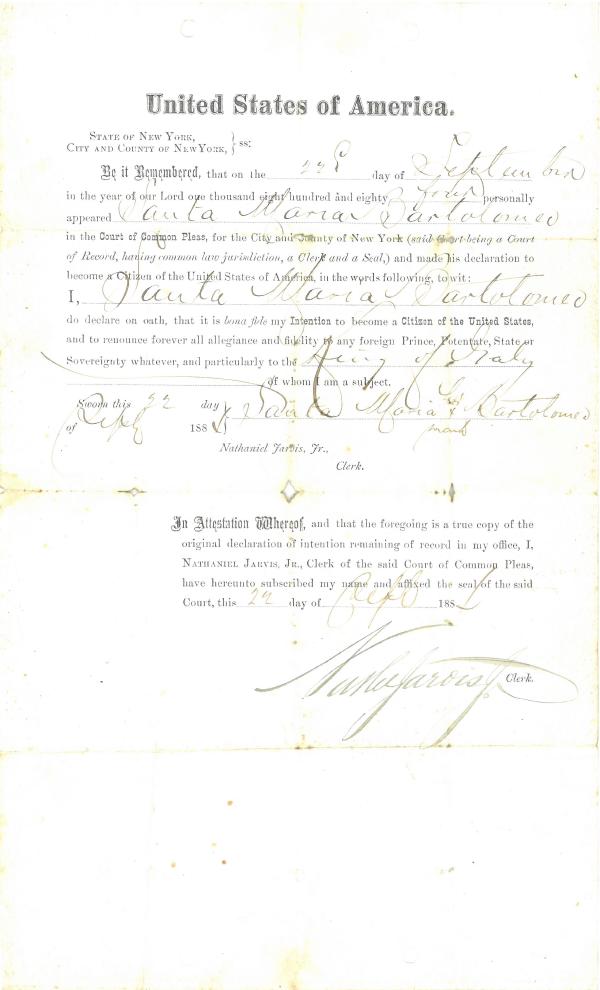 United States of America.
STATE OF NEW YORK,
CITY AND COUNTY OF NEW YORK, } ss:
Be it Remembered, that on the 22d day of September
in the year of our Lord one thousand eight hundred and eighty four personally
appeared Santa Maria Bartolomeo
in the Court of Common Pleas, for the City and County of New York (said Court being a Court
of Record, having common law jurisdiction, a Clerk and a Seal,) and made his declaration to
become a Citizen of the United States of America, in the words following, to wit:
I, Santa Maria Bartolomeo
do declare on oath, that it is bona fide my Intention to become a Citizen of the United States,
and to renounce forever all allegiance and fidelity to any foreign Prince, Potentate, State or
Sovereignty whatever, and particularly to the King of Italy
of whom I am a subject.
Sworn this 22 day } Santa Maria X Bartolomeo
of Sept 1884 mark
Nathaniel Jarvis, Jr.,
Clerk.
In Attestation Whereof, and that the foregoing is a true copy of the
original declaration of intention remaining of record in my office, I,
NATHANIEL JARVIS, JR., Clerk of the said Court of Common Pleas,
have hereunto subscribed my name and affixed the seal of the said
Court, this 22 day of Sept 1884
Nathl Jarvis Jr. Clerk.